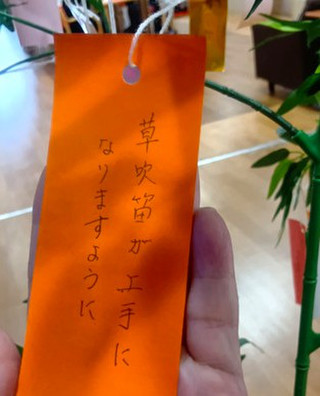 草吹笛が上手に
なりますように